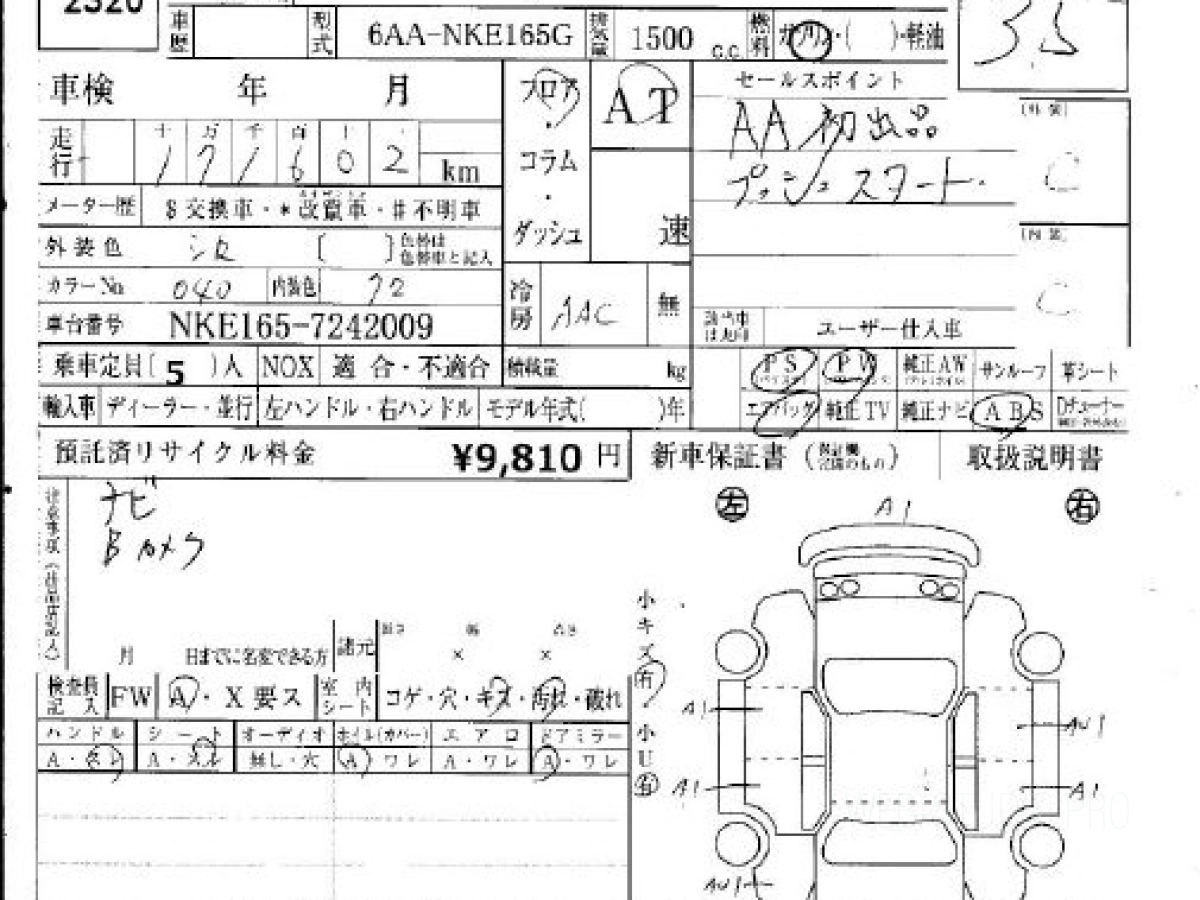 2320
車歴 型式 6AA-NKE165G 排気量 1500 c.c. 燃料 ガソリン・( )・軽油 3.5
車検 年 月 フロア AT セールスポイント
AA初出品
プッシュスタート
走行 十 万 千 百 十 ・
1 7 1 6 0 2 km
・
コラム
・
ダッシュ
速
(外装)
C
(内装)
C
メーター歴 $交換車・*改竄車・#不明車
外装色 シロ [ ] 色替は
色替車と記入
カラーNo 040 内装色 72 冷房 AAC 無
車台番号 NKE165-7242009 該当車は丸印 ユーザー仕入車
乗車定員( 5 )人 NOX 適合・不適合 積載量 kg
PS PW 純正AW サンルーフ 革シート
輸入車 ディーラー・並行 左ハンドル・右ハンドル モデル年式( )年
エアバッグ 純正TV 純正ナビ ABS Dチューナー
預託済リサイクル料金 ¥9,810 円 新車保証書 取扱説明書
ナビ
Bカメラ
月 日までに名変できる方 諸元
× ×
検査員記入 FW A・X要ス 室内シート コゲ・穴・キズ・汚れ・破れ
ハンドル シート オーディオ ホイル(カバー) エアロ ドアミラー
A・スレ A・スレ 無し・穴 A・ワレ A・ワレ A・ワレ
左 右
A1
小キズ 有
小U 有
A1 AU1
A1 A1
AU1